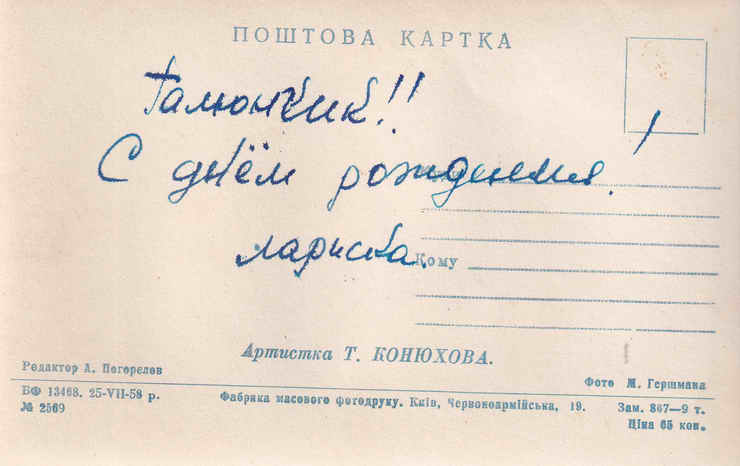 ПОШТОВА КАРТКА
Галюнчик!!
С днём рождения!
Лариска.
Кому
Артистка Т. КОНЮХОВА.
Редактор А. Погорєлов
Фото М. Гершмана
БФ 13468. 25-VII-58 р.
Фабрика масового фотодруку. Київ, Червоноармійська, 19.
Зам. 867—9 т.
№ 2569
Ціна 65 коп.